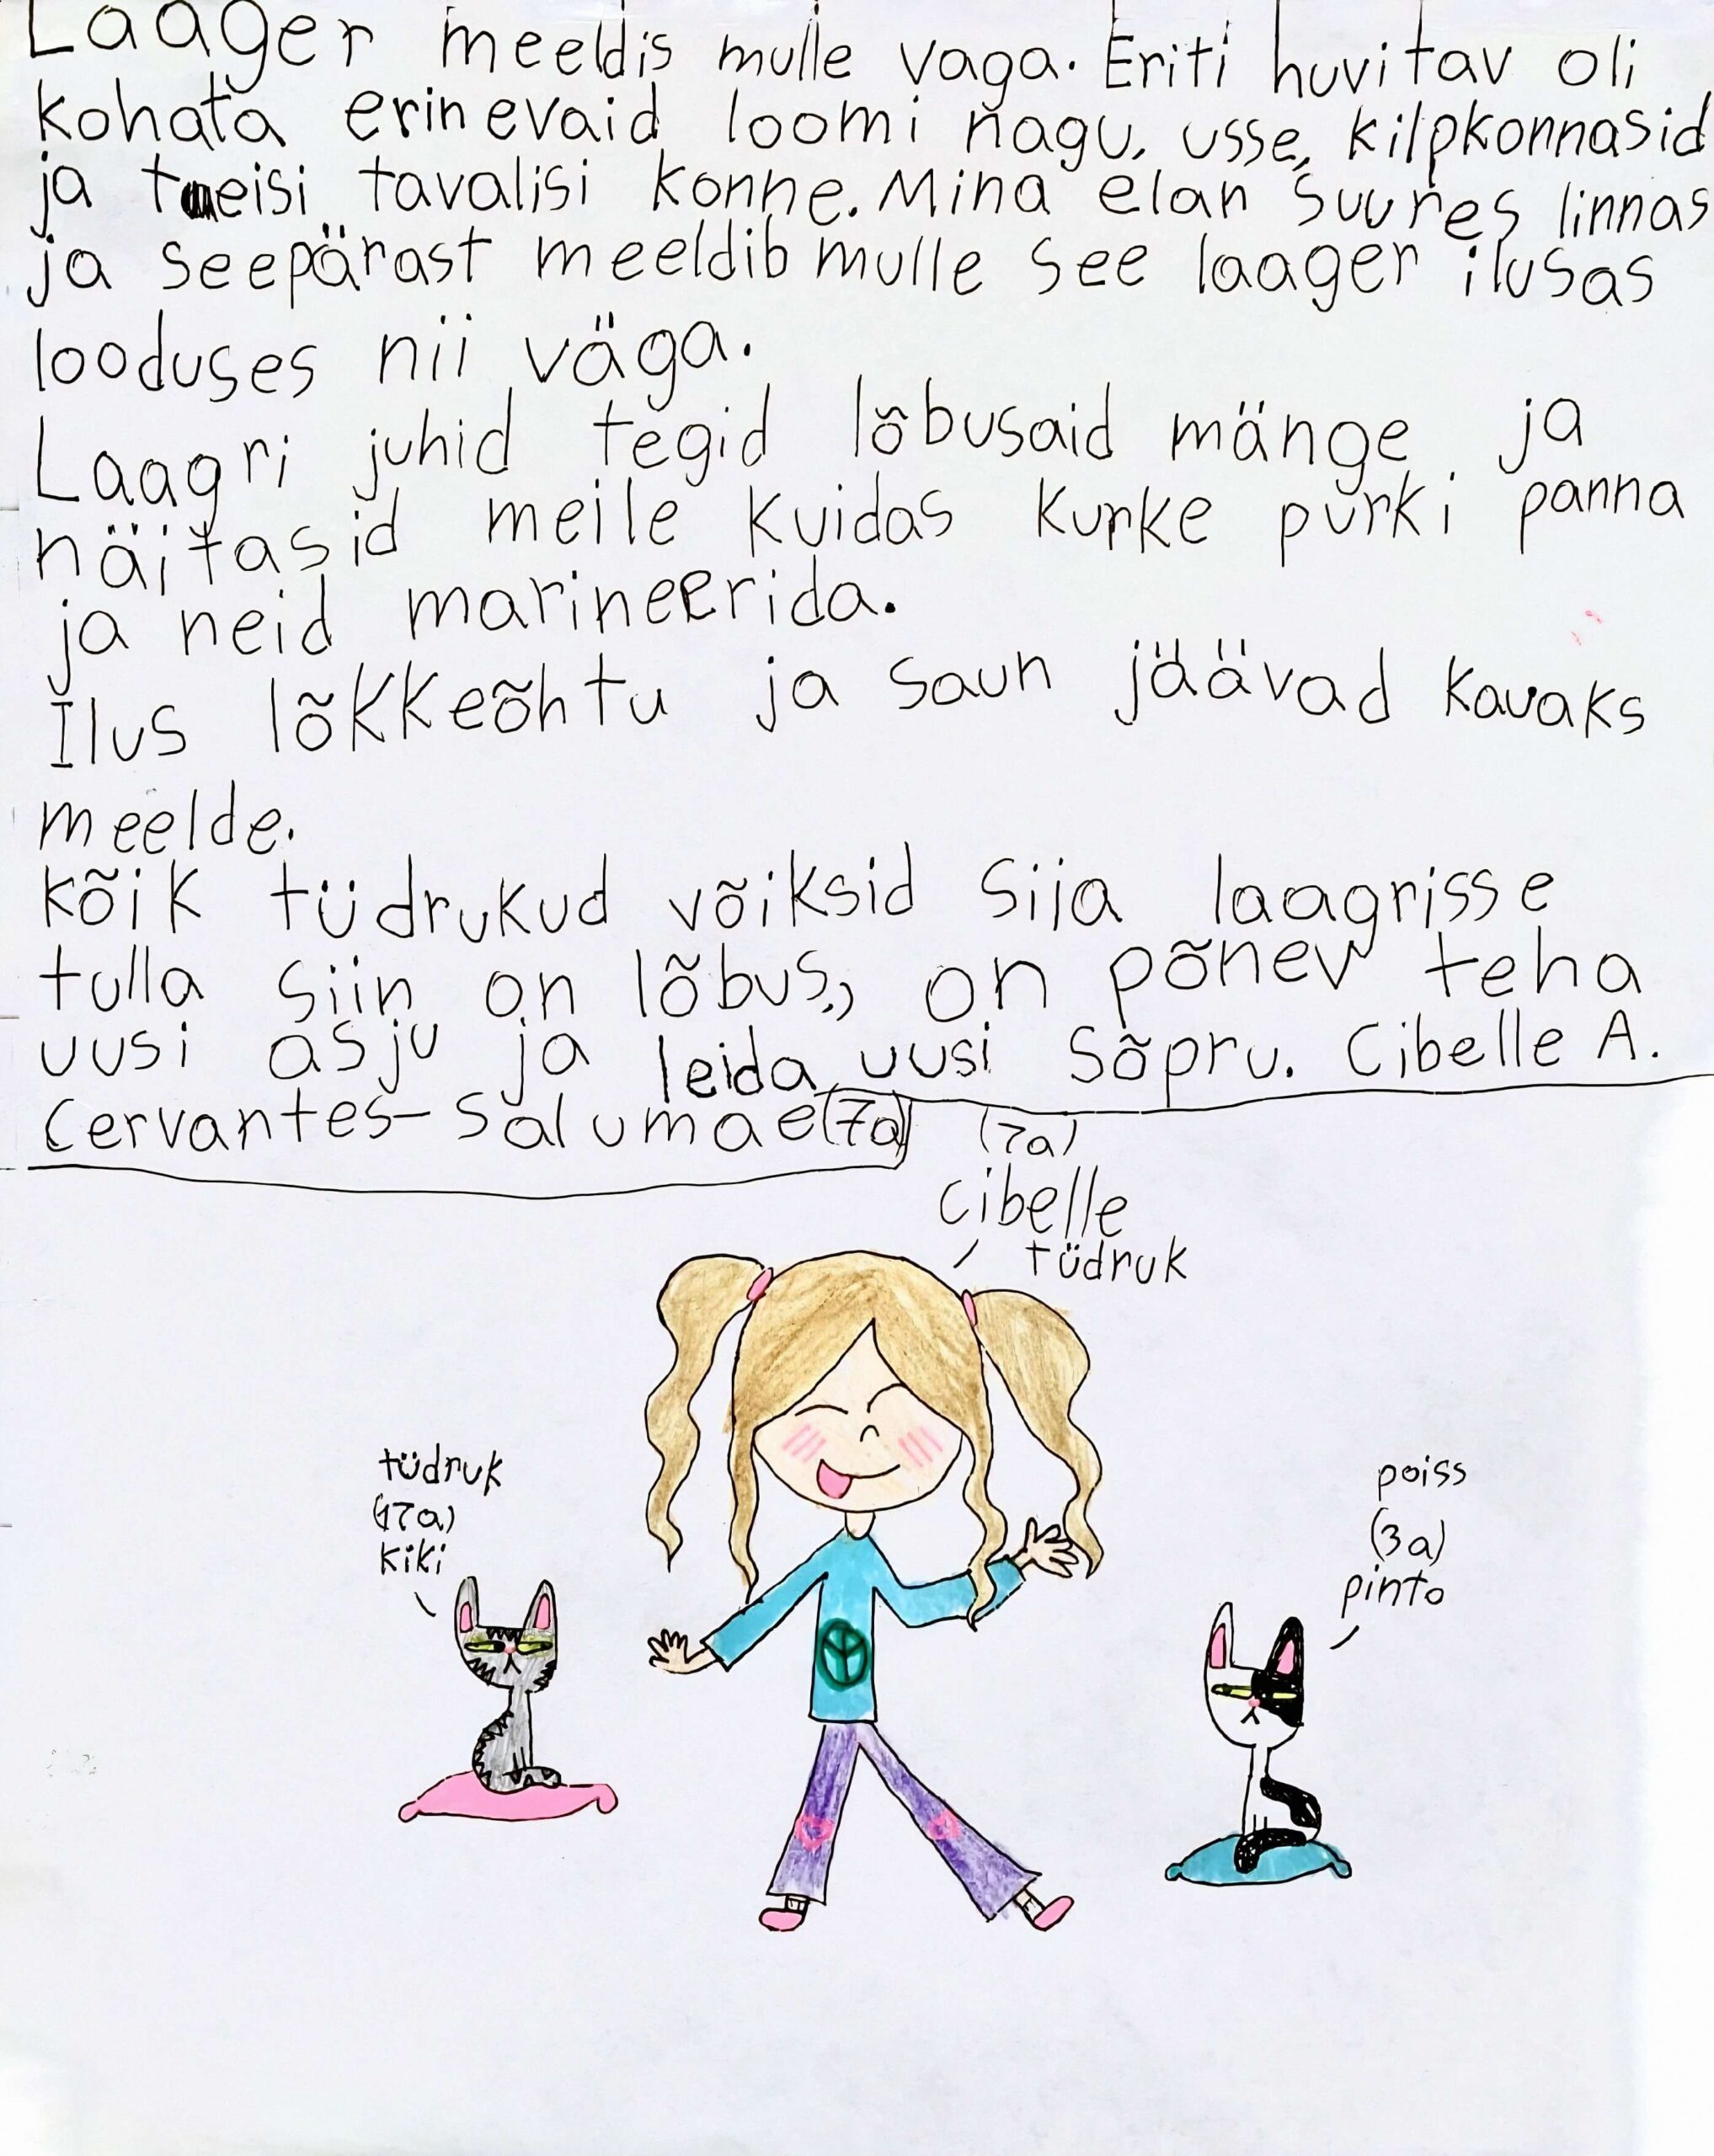 Laager meeldis mulle vaga. Eriti huvitav oli
kohata erinevaid loomi nagu, usse, kilpkonnasid
ja teisi tavalisi konne. Mina elan suures linnas
ja seepärast meeldib mulle see laager ilusas
looduses nii väga.
Laagri juhid tegid lõbusaid mänge ja
näitasid meile kuidas kurke purki panna
ja neid marineerida.
Ilus lõkkeõhtu ja saun jäävad kauaks
meelde.
Kõik tüdrukud võiksid siia laagrisse
tulla siin on lõbus, on põnev teha
uusi asju ja leida uusi sõpru. Cibelle A.
Cervantes-Salumae (7a)
(7a)
Cibelle
tüdruk
tüdruk
(17a)
kiki
poiss
(3a)
pinto